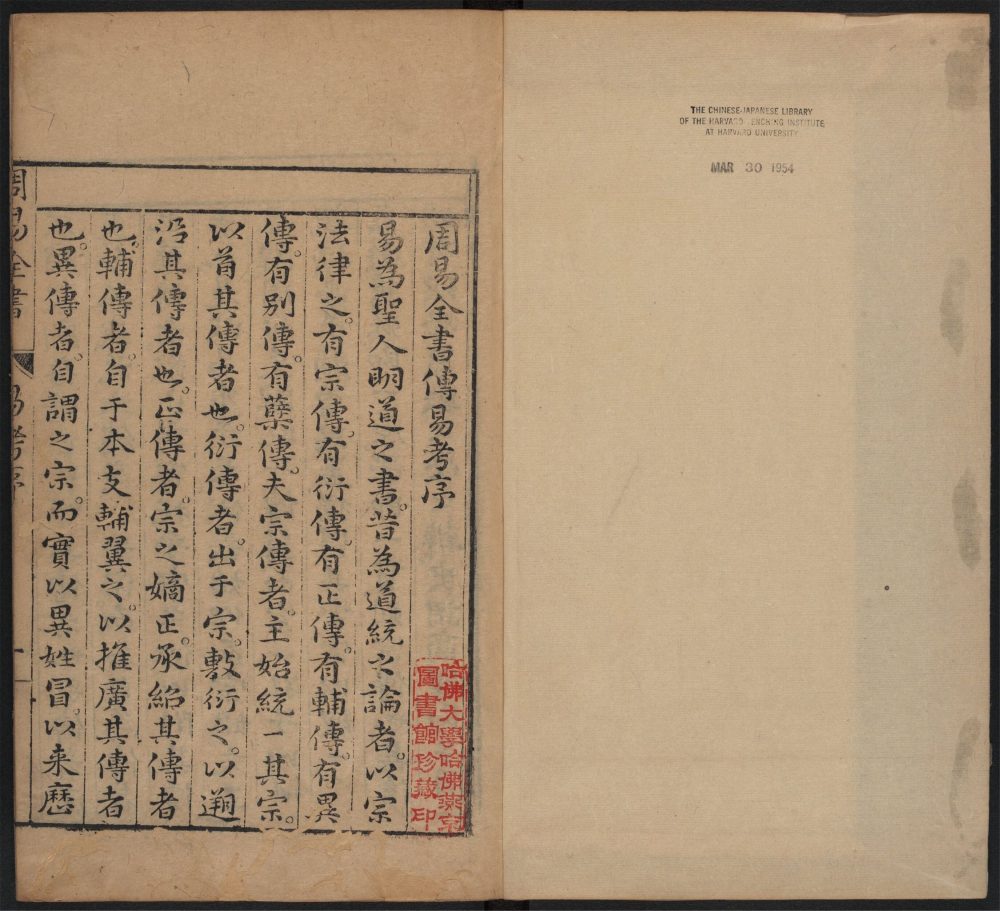 THE CHINESE-JAPANESE LIBRARY
OF THE HARVARD-YENCHING INSTITUTE
AT HARVARD UNIVERSITY
MAR 30 1954
周易全書傳易考序
易為聖人明道之書。昔為道統之論者。以宗
法律之。有宗傳。有衍傳。有正傳。有輔傳。有異
傳。有別傳。有蘖傳。夫宗傳者。主始統一其宗。
以首其傳者也。衍傳者。出于宗。敷衍之。以遡
沿其傳者也。正傳者。宗之嫡正。承紹其傳者
也。輔傳者。自于本支輔翼之。以推廣其傳者
也。異傳者。自謂之宗。而實以異姓冒。以来歷
周易全書 易考序 一
哈佛大學哈佛燕京
圖書館珍藏印